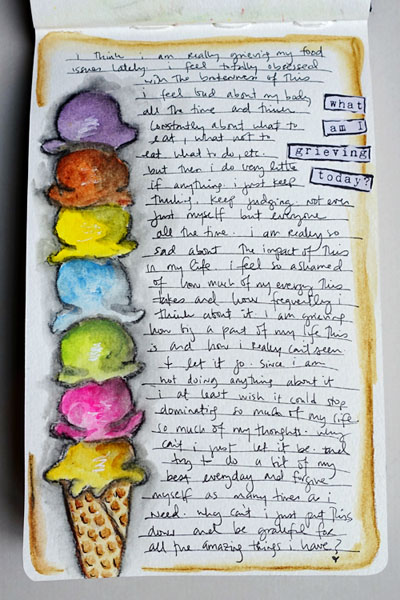 i think i am really grieving my food
issues lately. i feel totally obsessed
with the of this
i feel bad about my body
all the time and think
constantly about what to
eat, what not to
eat what to do, etc.
but then i do very little
if anything. i just keep
thinking, keep judging. not even
just myself but everyone
all the time. i am really so
sad about the impact of this
in my life. i feel so ashamed
of how much of my energy this
takes and how frequently i
think about it. i am grieving
how big a part of my life this
is and how i really can't seem
to let it go. since i am
not doing anything about it
i at least wish it could stop
dominating so much of my life
so much of my thoughts. why
can't i just let it be. and
try to do a bit of my
best everyday and forgive
myself as many times as i
need. why can't i just put this
down and be grateful for
all the amazing things i have?
what
am I
grieving
today?